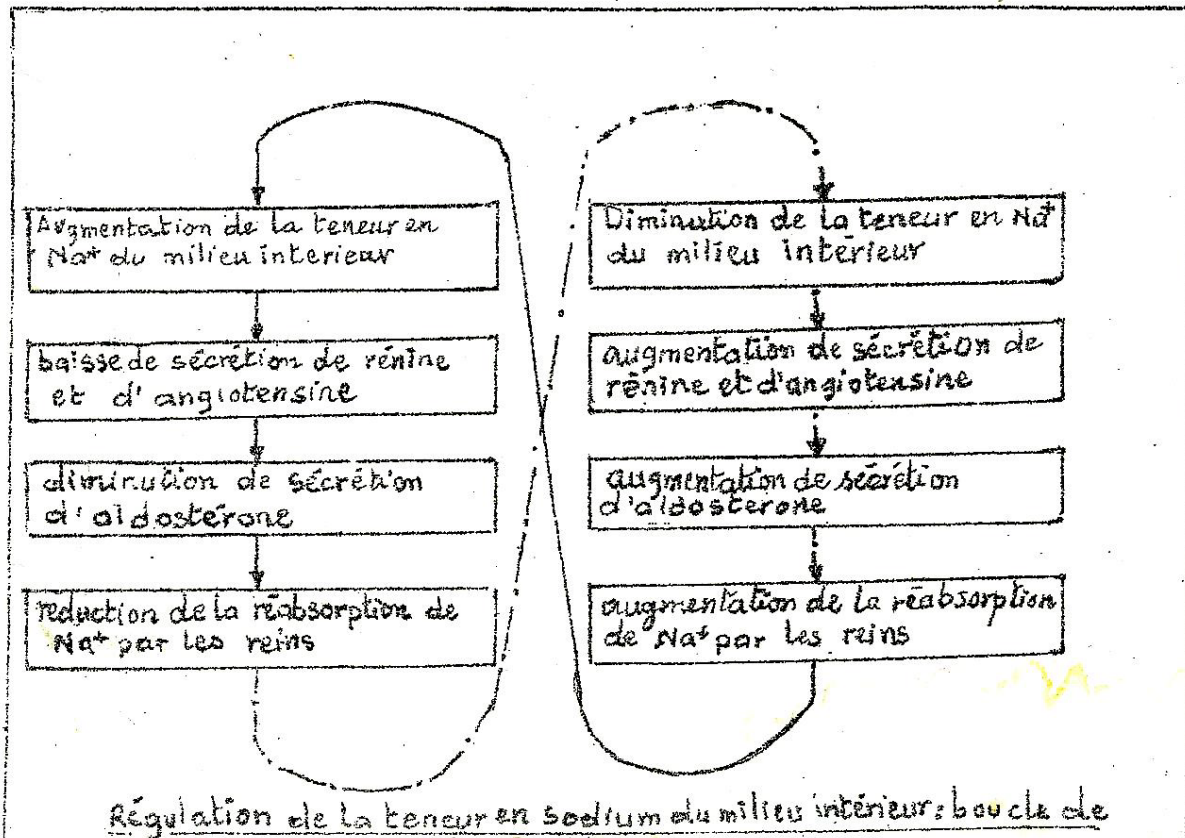 Augmentation de la teneur en
Na⁺ du milieu interieur
baisse de sécrétion de rénine
et d'angiotensine
diminution de sécrétion
d'aldostérone
réduction de la réabsorption de
Na⁺ par les reins
Diminution de la teneur en Na⁺
du milieu intérieur
augmentation de sécrétion de
rénine et d'angiotensine
augmentation de sécrétion
d'aldosterone
augmentation de la réabsorption
de Na⁺ par les reins
Régulation de la teneur en sodium du milieu intérieur: boucle de